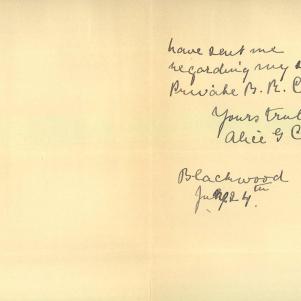 have sent me
regarding my
Private B. R. C
Yours tru
Alice G C
Blackwood
July 24th